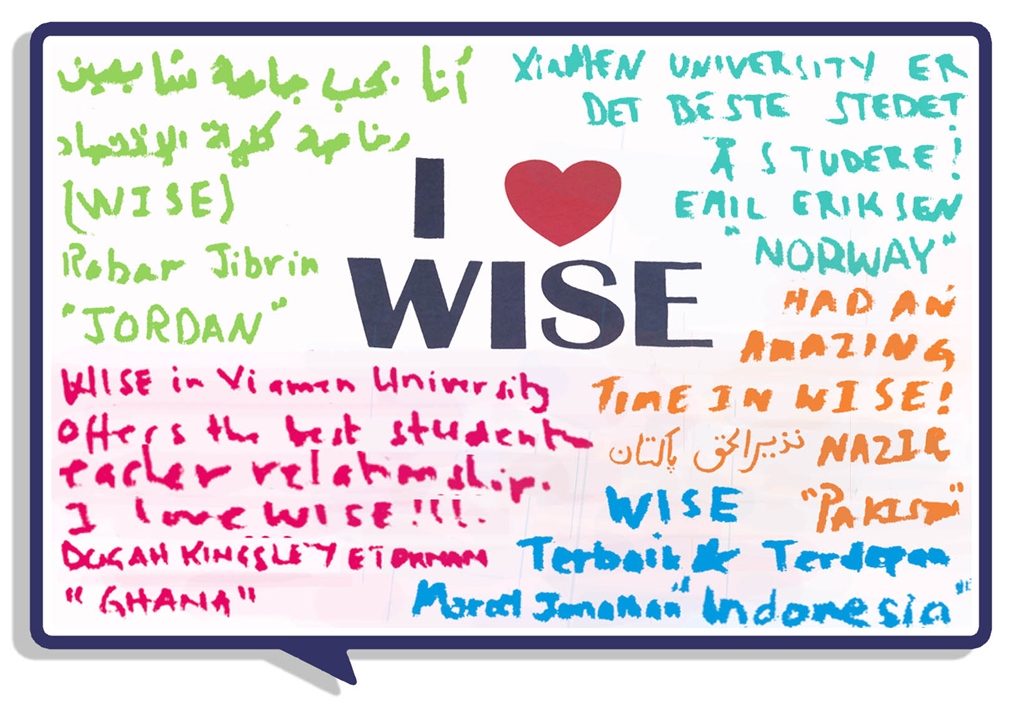 أنا بحب جامعة
وخاصة كلية الإقتصاد
(WISE)
Rabar Jibrin
"JORDAN"
I ❤ WISE
XIAMEN UNIVERSITY ER
DET BESTE STEDET
Å STUDERE!
EMIL ERIKSEN
"NORWAY"
HAD AN
AMAZING
TIME IN WISE!
NAZIR نذیر الحق پاکستان
"PAKISTAN"
WISE in Xiamen University
offers the best student
teacher relationship.
I love WISE!!!.
DOGAH KINGSLEY ETORNAM
"GHANA"
WISE
Terbaik & Terdepan
Marcel Jonathan "Indonesia"